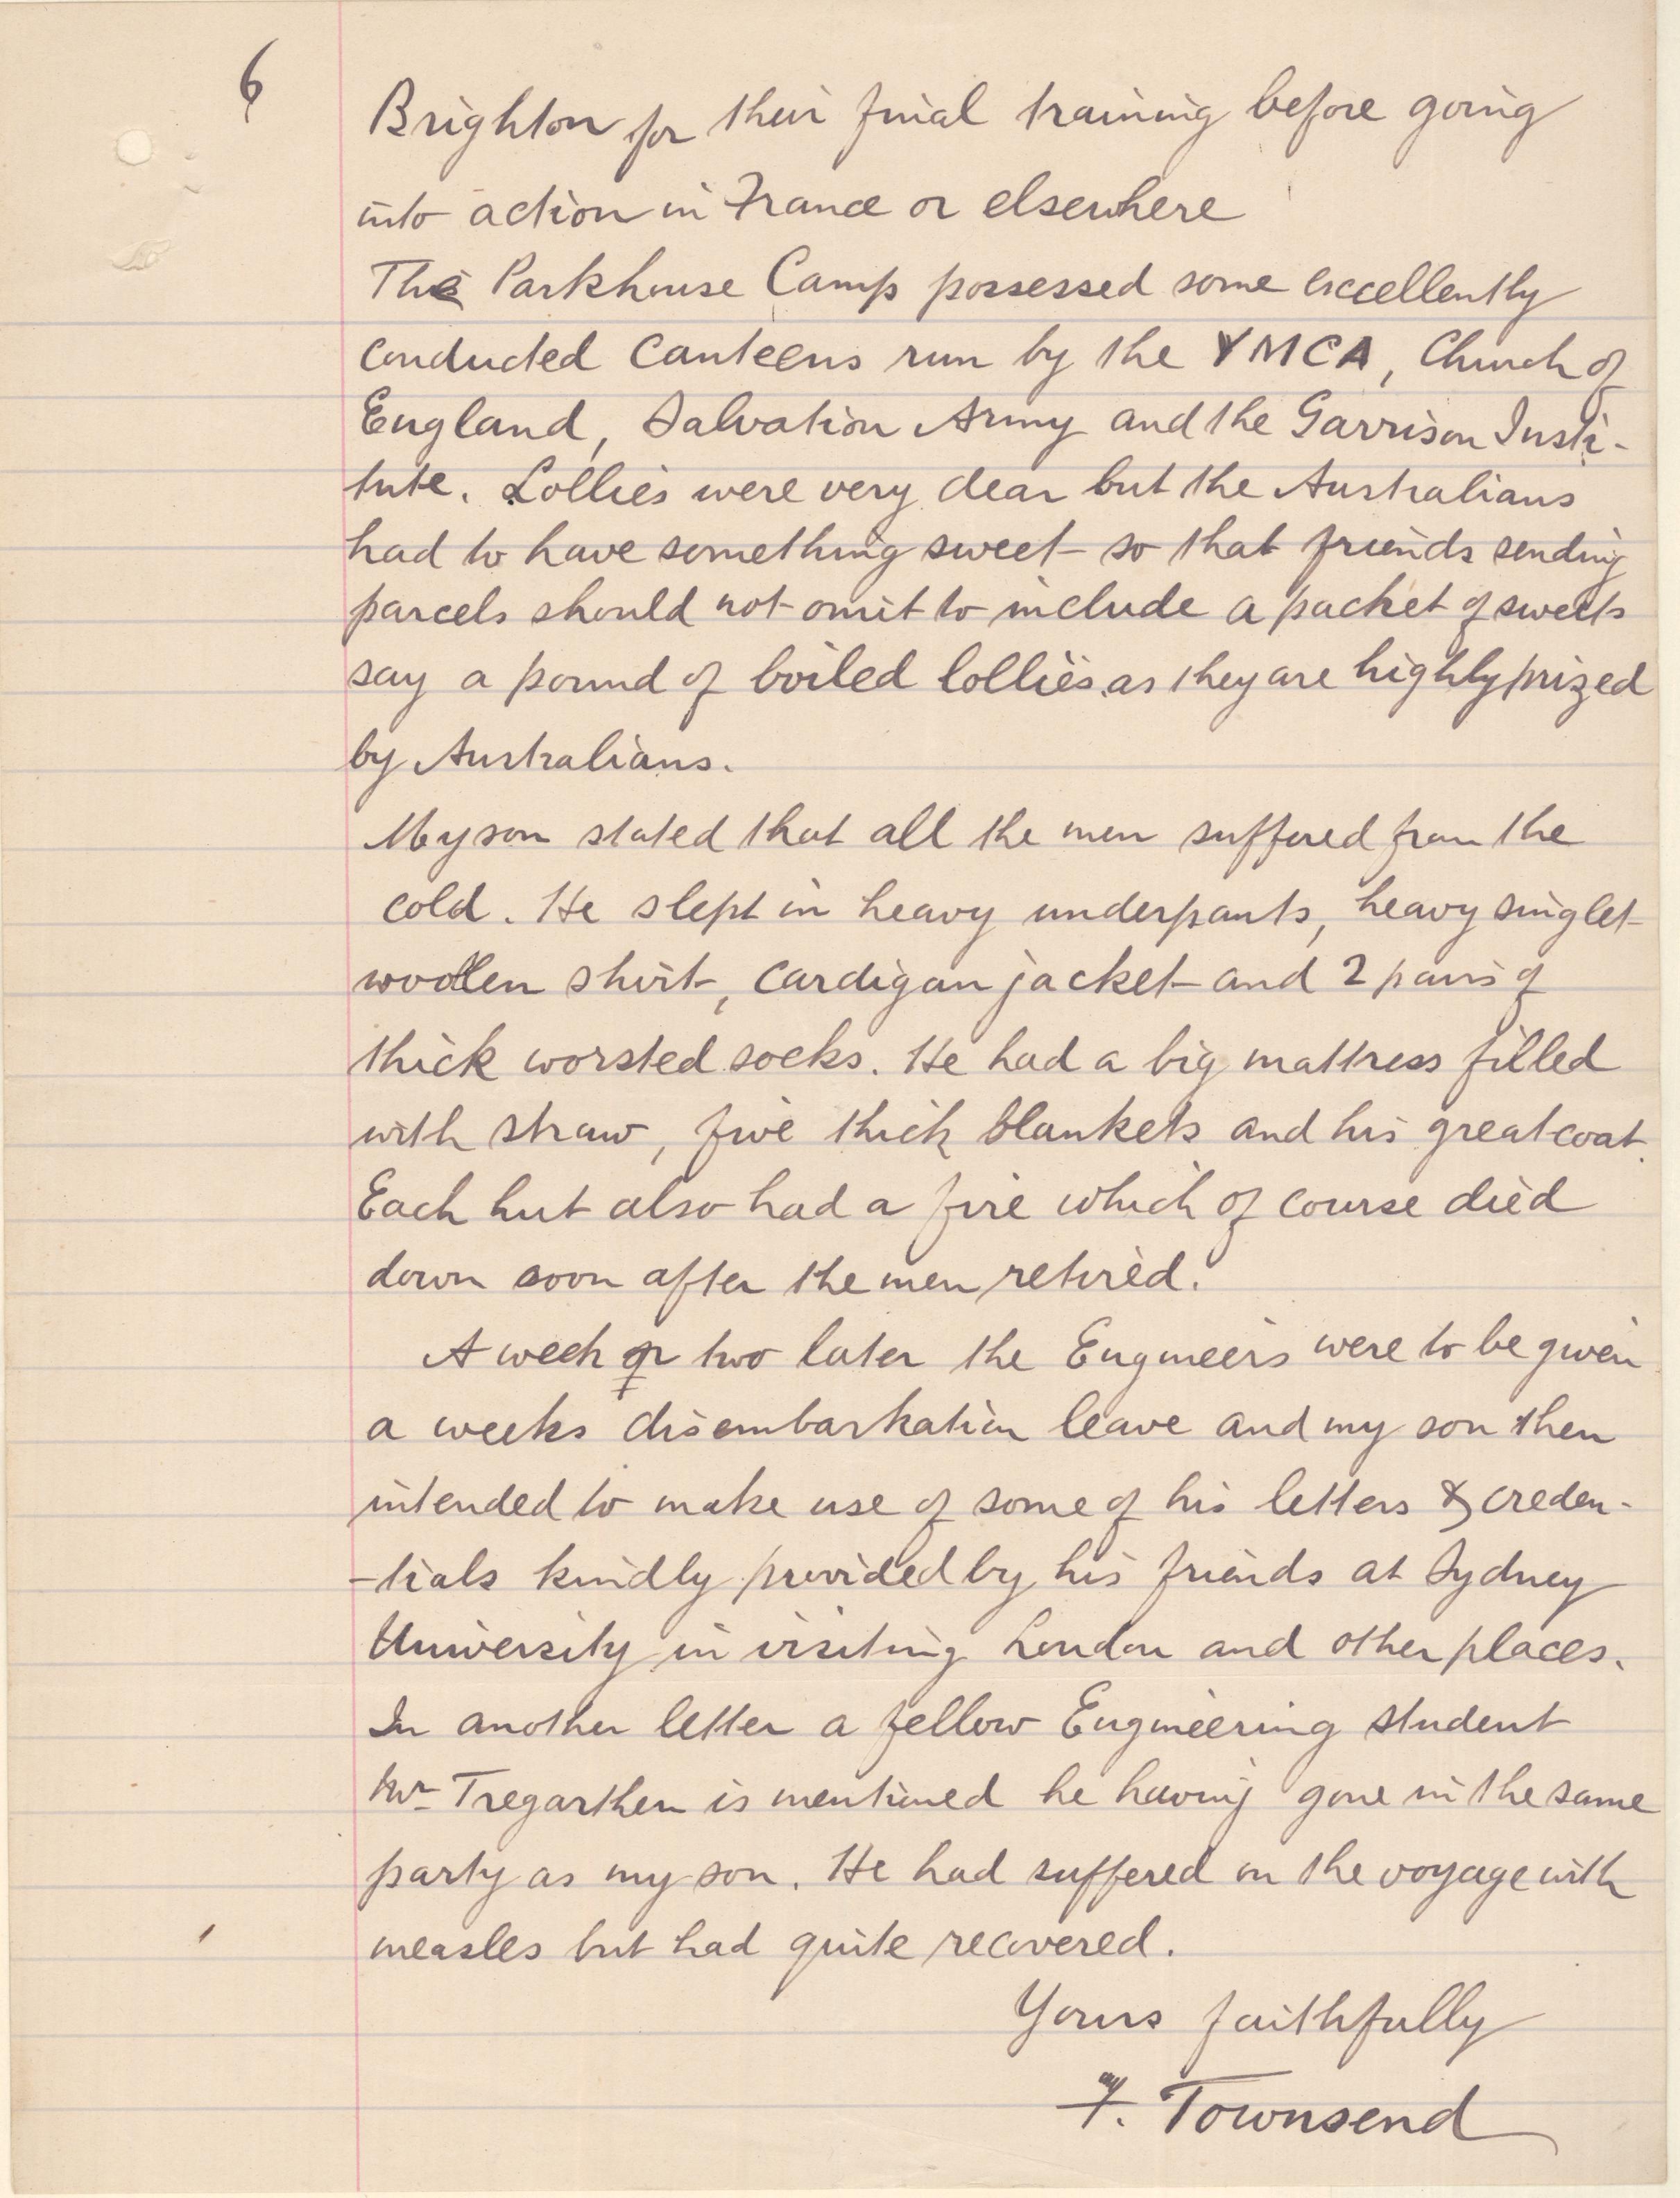 6
Brighton for their final training before going
into action in France or elsewhere
The Parkhouse Camp possessed some excellently
conducted canteens run by the YMCA, Church of
England, Salvation Army and the Garrison Insti-
tute. Lollies were very dear but the Australians
had to have something sweet so that friends sending
parcels should not omit to include a packet of sweets
say a pound of boiled lollies as they are highly prized
by Australians.
My son stated that all the men suffered from the
cold. He slept in heavy underpants, heavy singlet
woollen shirt, cardigan jacket and 2 pairs of
thick worsted socks. He had a big mattress filled
with straw, five thick blankets and his greatcoat.
Each hut also had a fire which of course died
down soon after the men retired.
A week or two later the Engineers were to be given
a weeks disembarkation leave and my son then
intended to make use of some of his letters & creden-
-tials kindly provided by his friends at Sydney
University in visiting London and other places.
In another letter a fellow Engineering student
Mr Tregarthen is mentioned he having gone in the same
party as my son. He had suffered on the voyage with
measles but had quite recovered.
Yours faithfully
F. Townsend